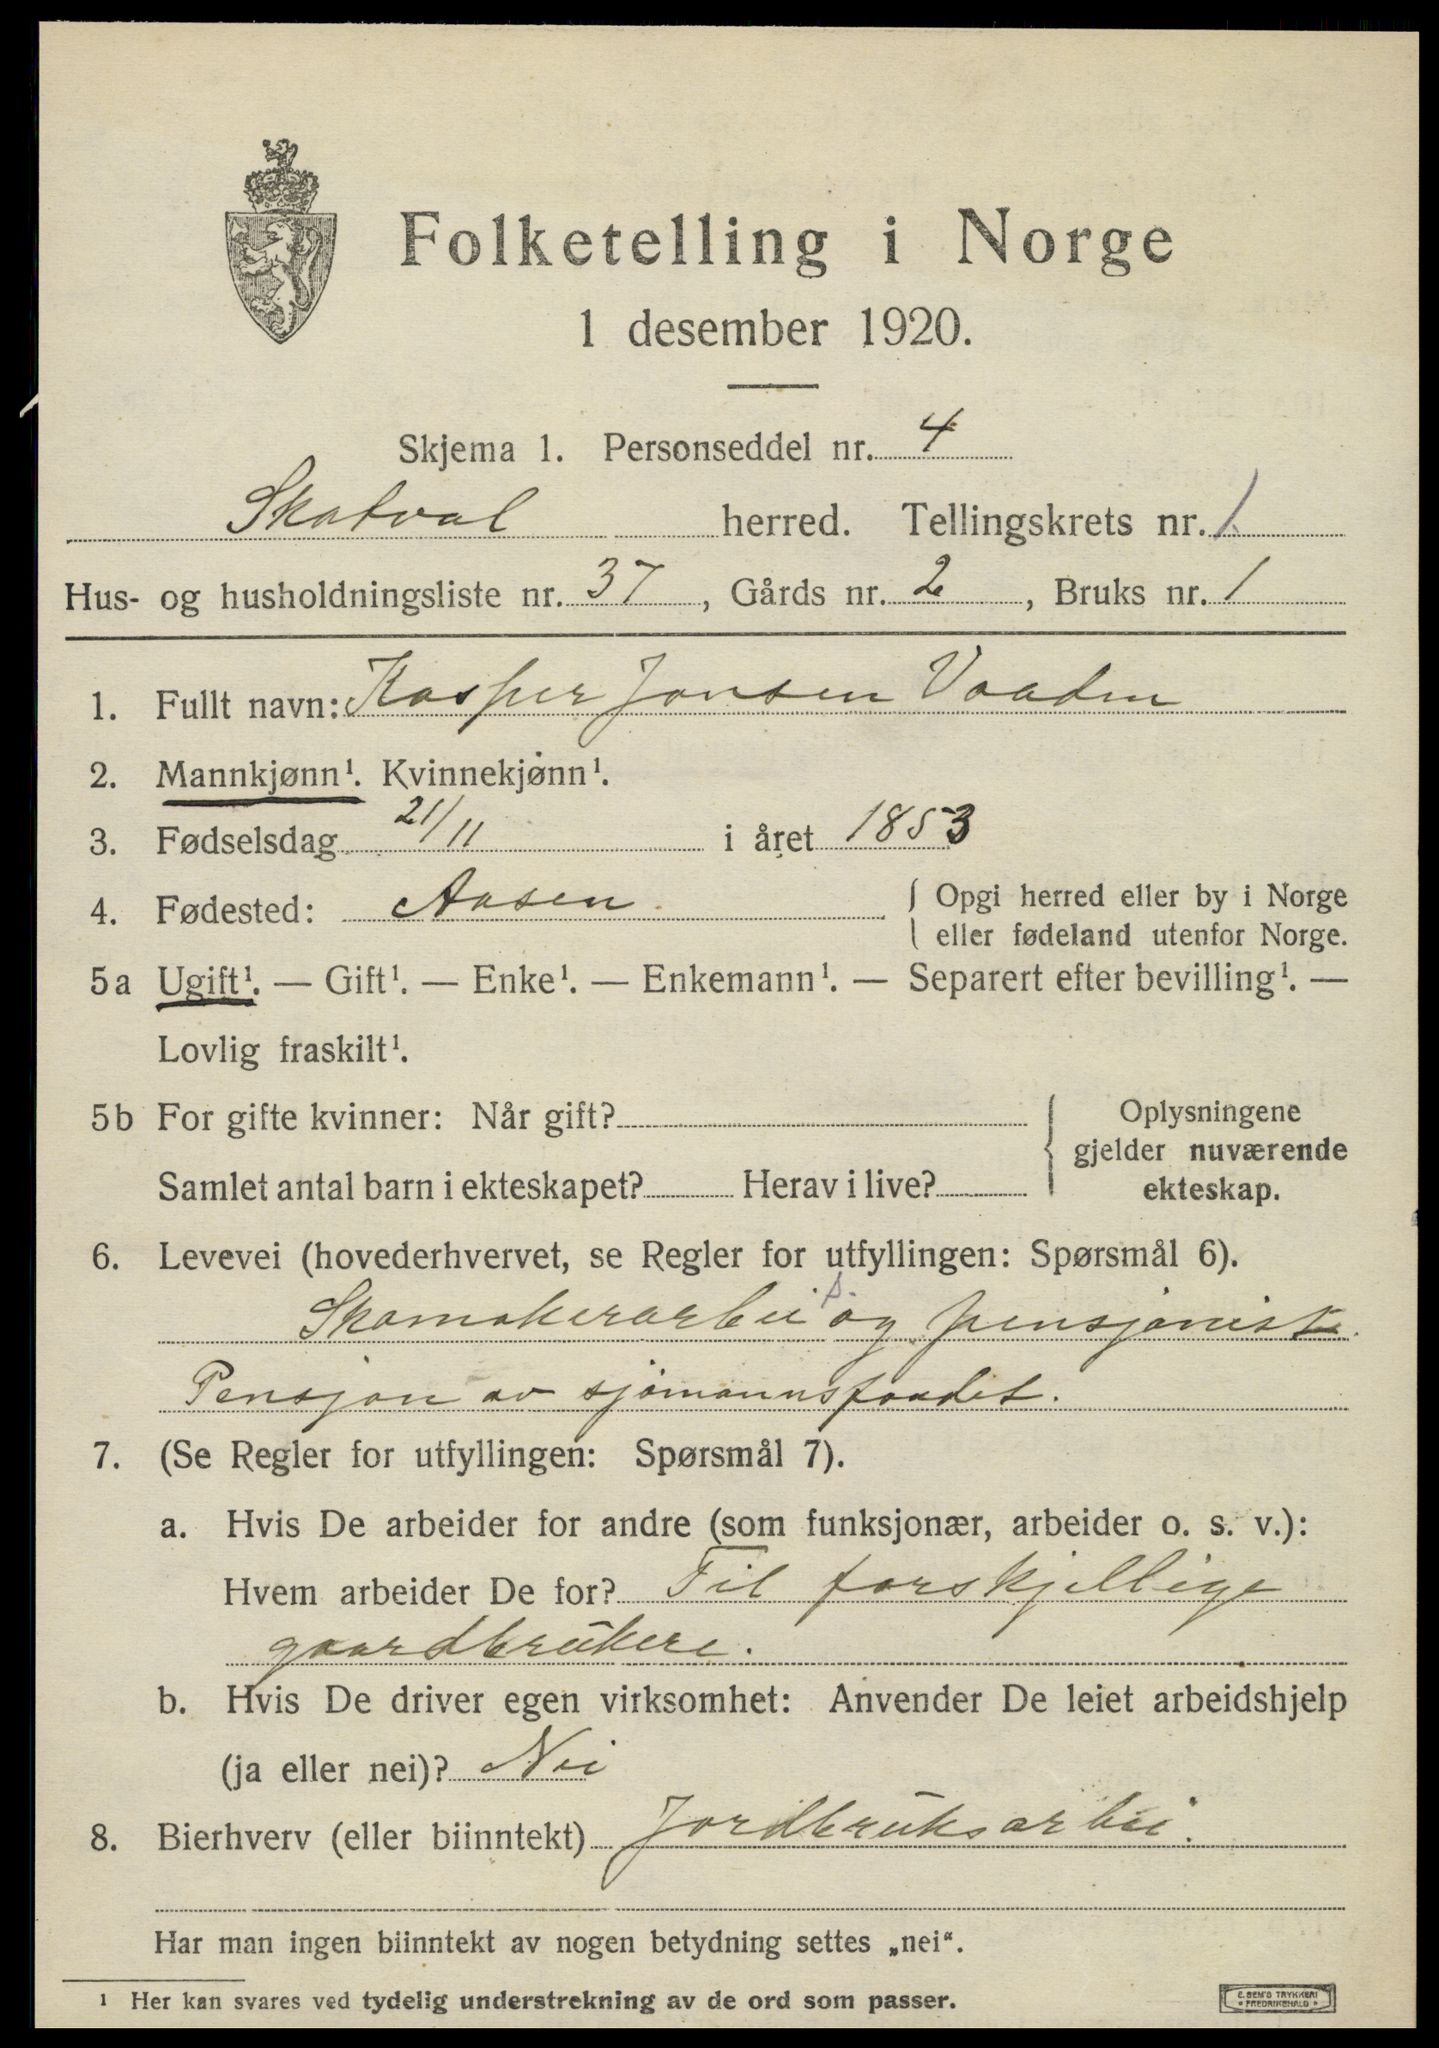 Folketelling i Norge
1 desember 1920.
Skjema 1. Personseddel nr. 4
Skatval herred. Tellingskrets nr. 1.
Hus- og husholdningsliste nr. 37, Gårds nr. 2, Bruks nr. 1
1. Fullt navn: Kasper Jonsen Vaaden
2. Mannkjønn¹. Kvinnekjønn¹.
3. Fødselsdag 21/11 i året 1853
4. Fødested: Aasen. { Opgi herred eller by i Norge
eller fødeland utenfor Norge.
5a Ugift¹. — Gift¹. — Enke¹. — Enkemann¹. — Separert efter bevilling¹. —
Lovlig fraskilt¹.
5b For gifte kvinner: Når gift? { Oplysningene
gjelder nuværende
Samlet antal barn i ekteskapet? Herav i live? ekteskap.
6. Levevei (hovederhvervet, se Regler for utfyllingen: Spørsmål 6).
Skomakerarbei p. og pensjonist.
Pensjon av sjømannsfondet.
7. (Se Regler for utfyllingen: Spørsmål 7).
a. Hvis De arbeider for andre (som funksjonær, arbeider o. s. v.):
Hvem arbeider De for? Til forskjellige
gaardbrukere.
b. Hvis De driver egen virksomhet: Anvender De leiet arbeidshjelp
(ja eller nei)? Nei
8. Bierhverv (eller biinntekt) Jordbruksarbei.
Har man ingen biinntekt av nogen betydning settes „nei“.
¹ Her kan svares ved tydelig understrekning av de ord som passer.
E. SEM'S TRYKKERI
* FREDRIKSHALD *